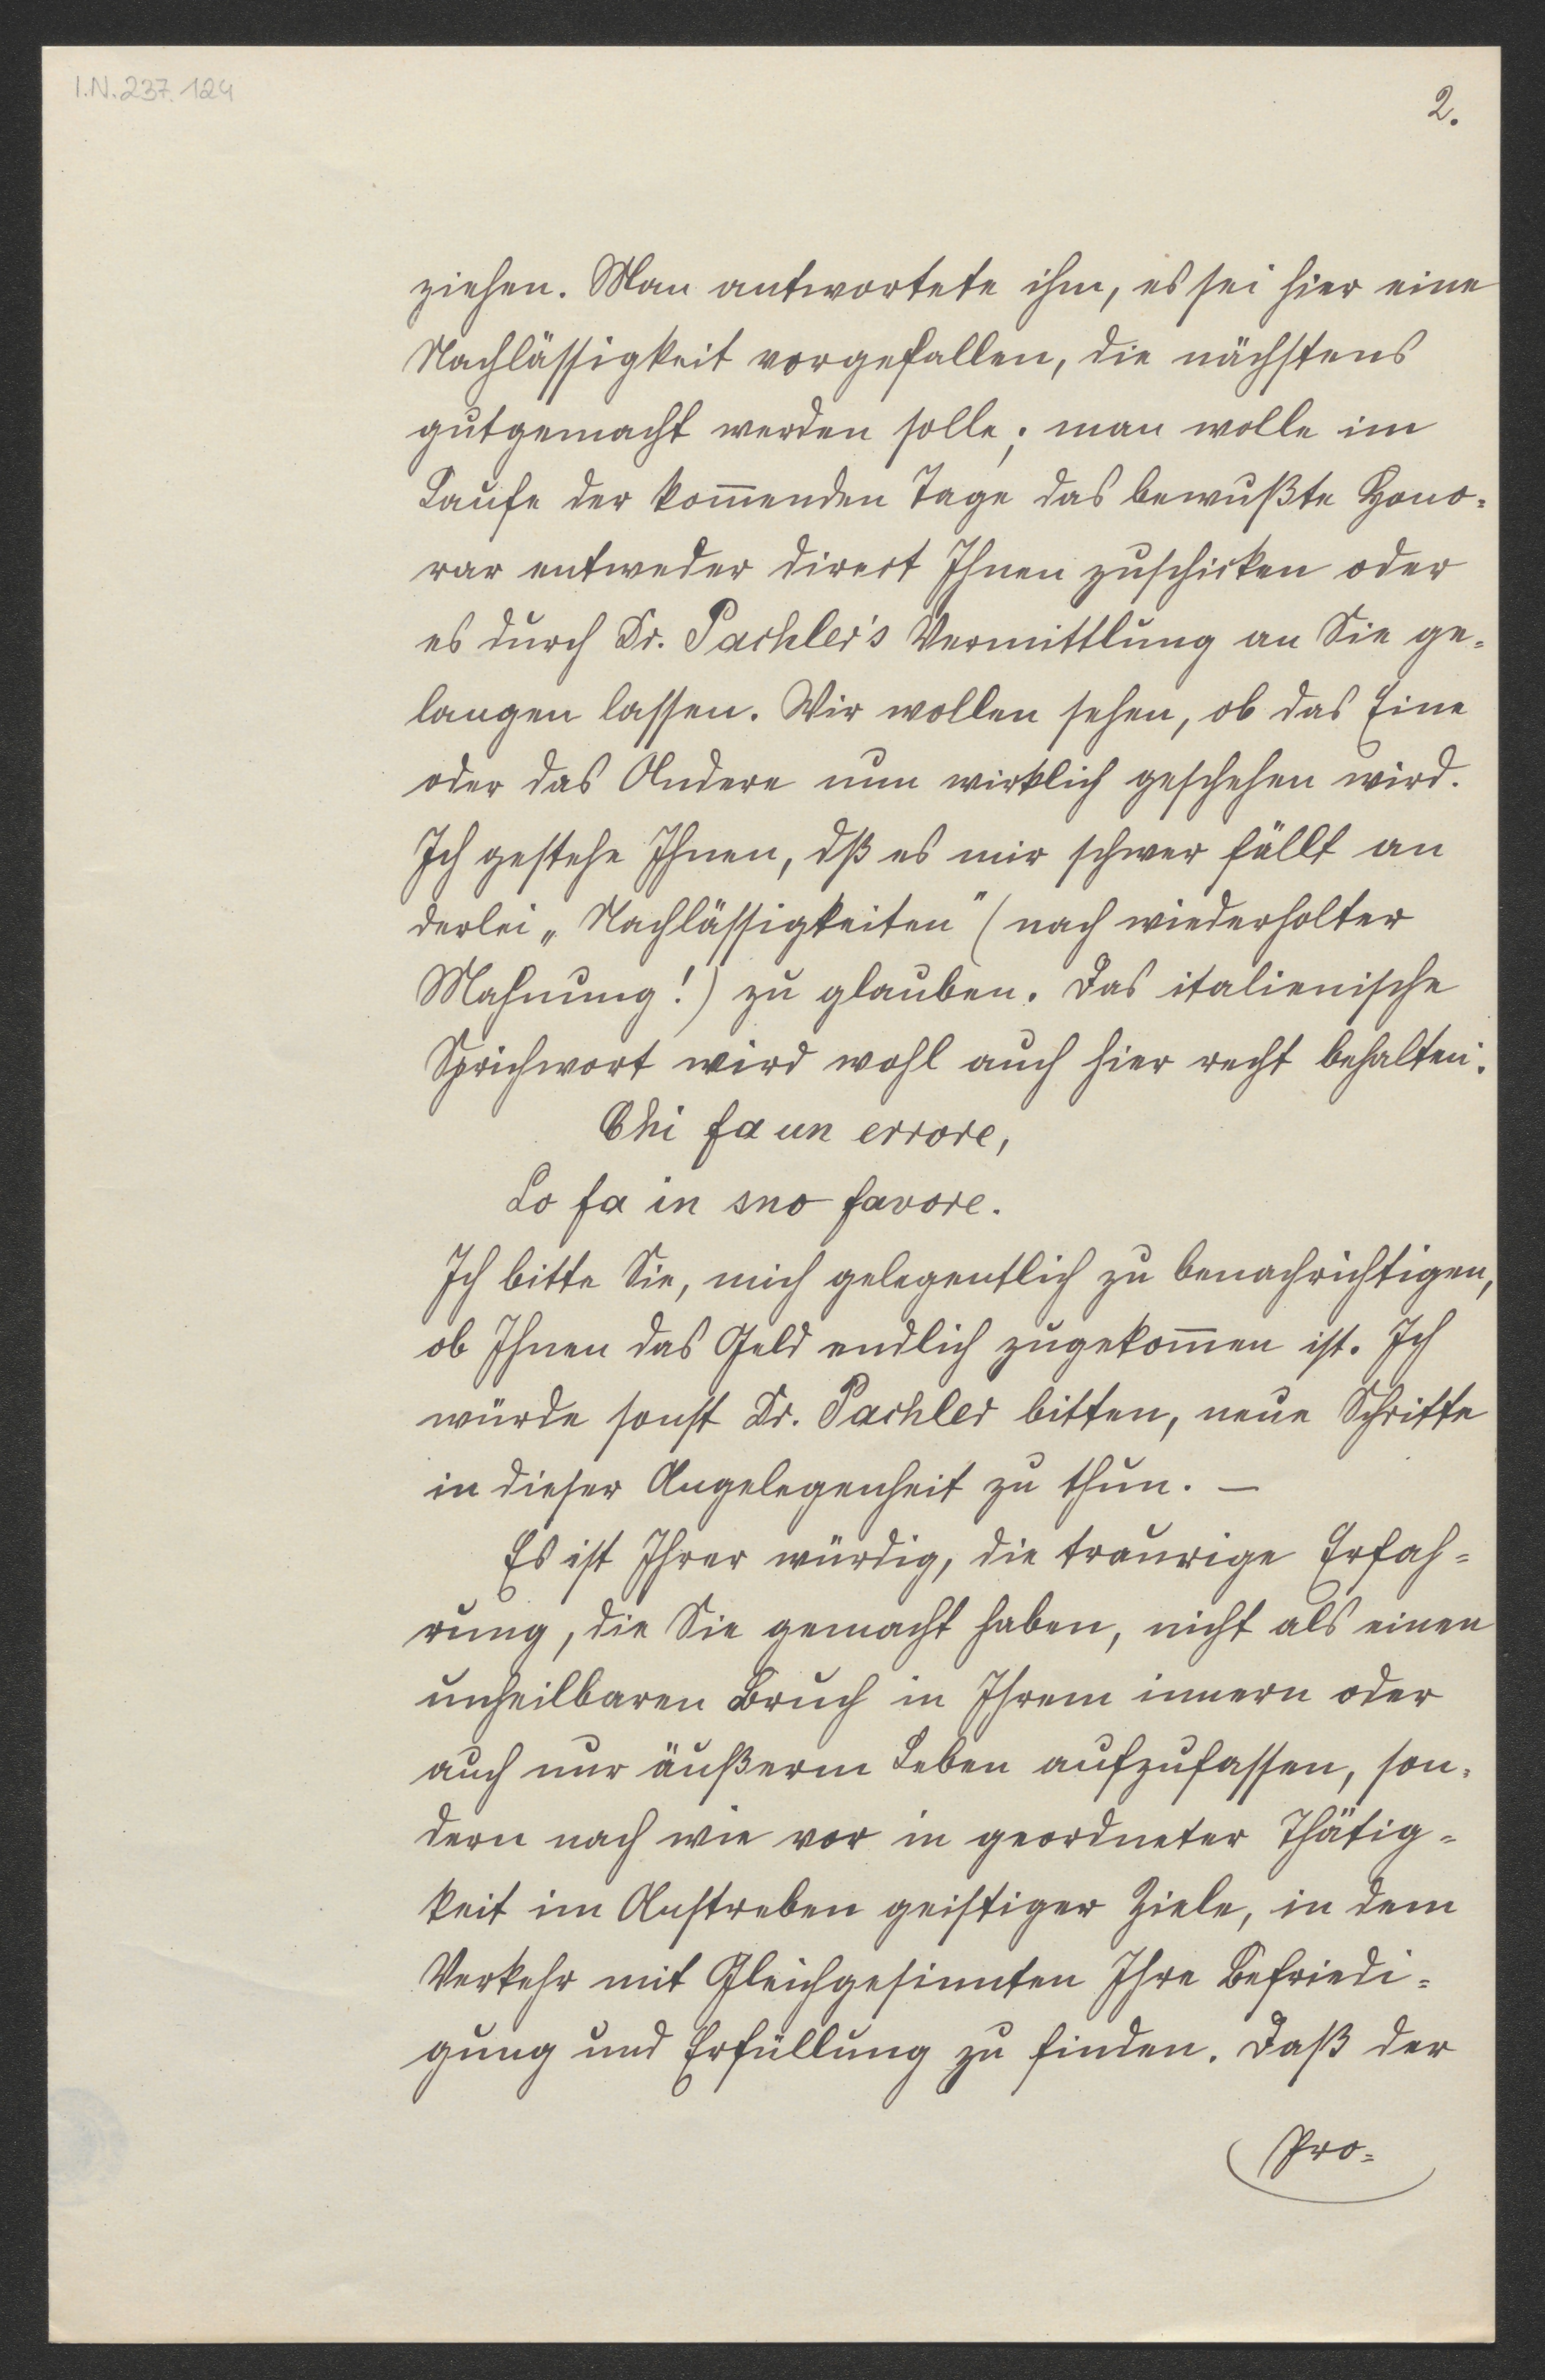 I.N. 237.124
2.
ziehen. Man antwortete ihm, es sei hier eine
Nachlässigkeit vorgefallen, die nächstens
gutgemacht werden solle; man wolle im
Laufe der kom̅enden Tage das bewußte Hono-
rar entweder direct Ihnen zuschicken oder
es durch Dr. Pachler's Vermittlung an Sie ge-
langen lassen. Wir wollen sehen, ob das Eine
oder das Andere nun wirklich geschehen wird.
Ich gestehe Ihnen, dß es mir schwer fällt an
derlei „Nachlässigkeiten" (nach wiederholter
Mahnung!) zu glauben. Das italienische
Sprichwort wird wohl auch hier recht behalten:
Chi fa un errore,
Lo fa in suo favore.
Ich bitte Sie, mich gelegentlich zu benachrichtigen,
ob Ihnen das Geld endlich zugekom̅en ist. Ich
würde sonst Dr. Pachler bitten, neue Schritte
in dieser Angelegenheit zu thun. —
Es ist Ihrer würdig, die traurige Erfah-
rung, die Sie gemacht haben, nicht als einen
unheilbaren Bruch in Ihrem innern oder
auch nur äußerm Leben aufzufassen, son-
dern nach wie vor in geordneter Thätig-
keit im Anstreben geistiger Ziele, in dem
Verkehr mit Gleichgesinnten Ihre Befriedi-
gung und Erfüllung zu finden. Daß der
Pro-